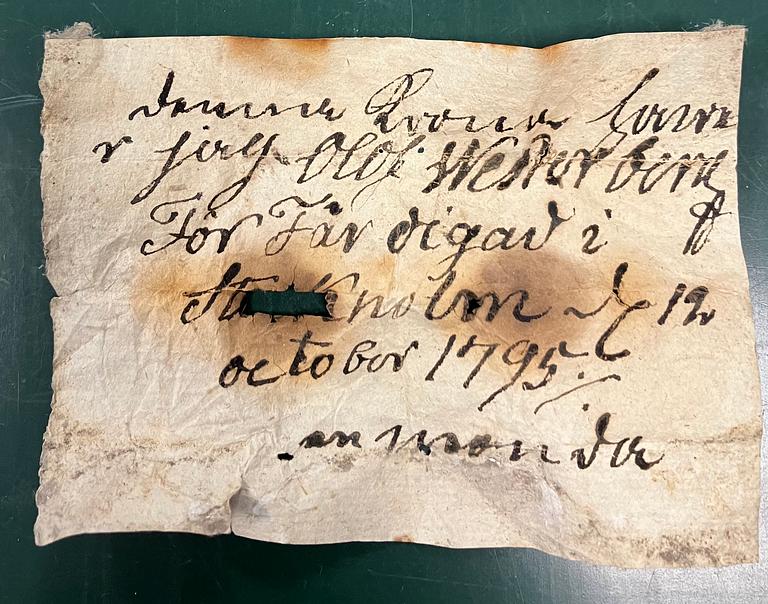 denna Krona hawe
r jag Olof Westerberg
För Fär digad i
Stockholm d 12
october 1795
en mon da